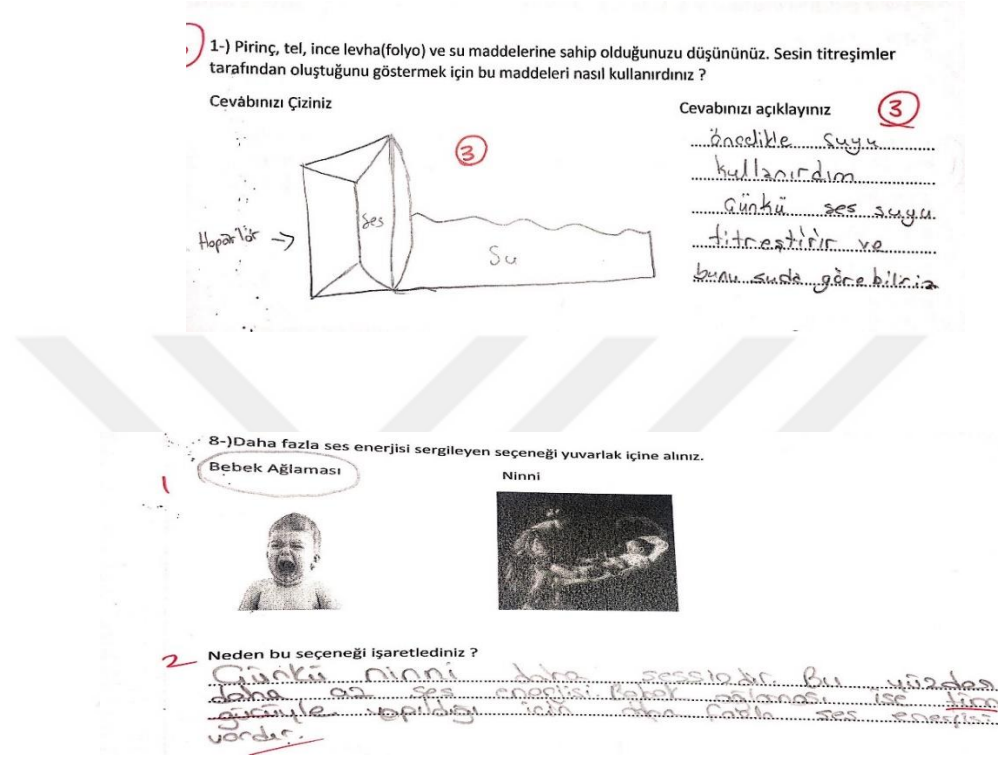 1-) Pirinç, tel, ince levha(folyo) ve su maddelerine sahip olduğunuzu düşününüz. Sesin titreşimler
tarafından oluştuğunu göstermek için bu maddeleri nasıl kullanırdınız ?
Cevabınızı Çiziniz
Cevabınızı açıklayınız
3
3
öncelikle suyu
kullanırdım
Çünkü ses suyu
titreştirir ve
bunu suda görebiliriz
Hoparlör →
Ses
Su
8-)Daha fazla ses enerjisi sergileyen seçeneği yuvarlak içine alınız.
1
Bebek Ağlaması
Ninni
2
Neden bu seçeneği işaretlediniz ?
Çünkü ninni daha sessizdir. Bu yüzden
daha az ses enerjisi Bebek ağlaması ise
gücüyle yapıldığı için daha fazla ses enerjisi
vardır.